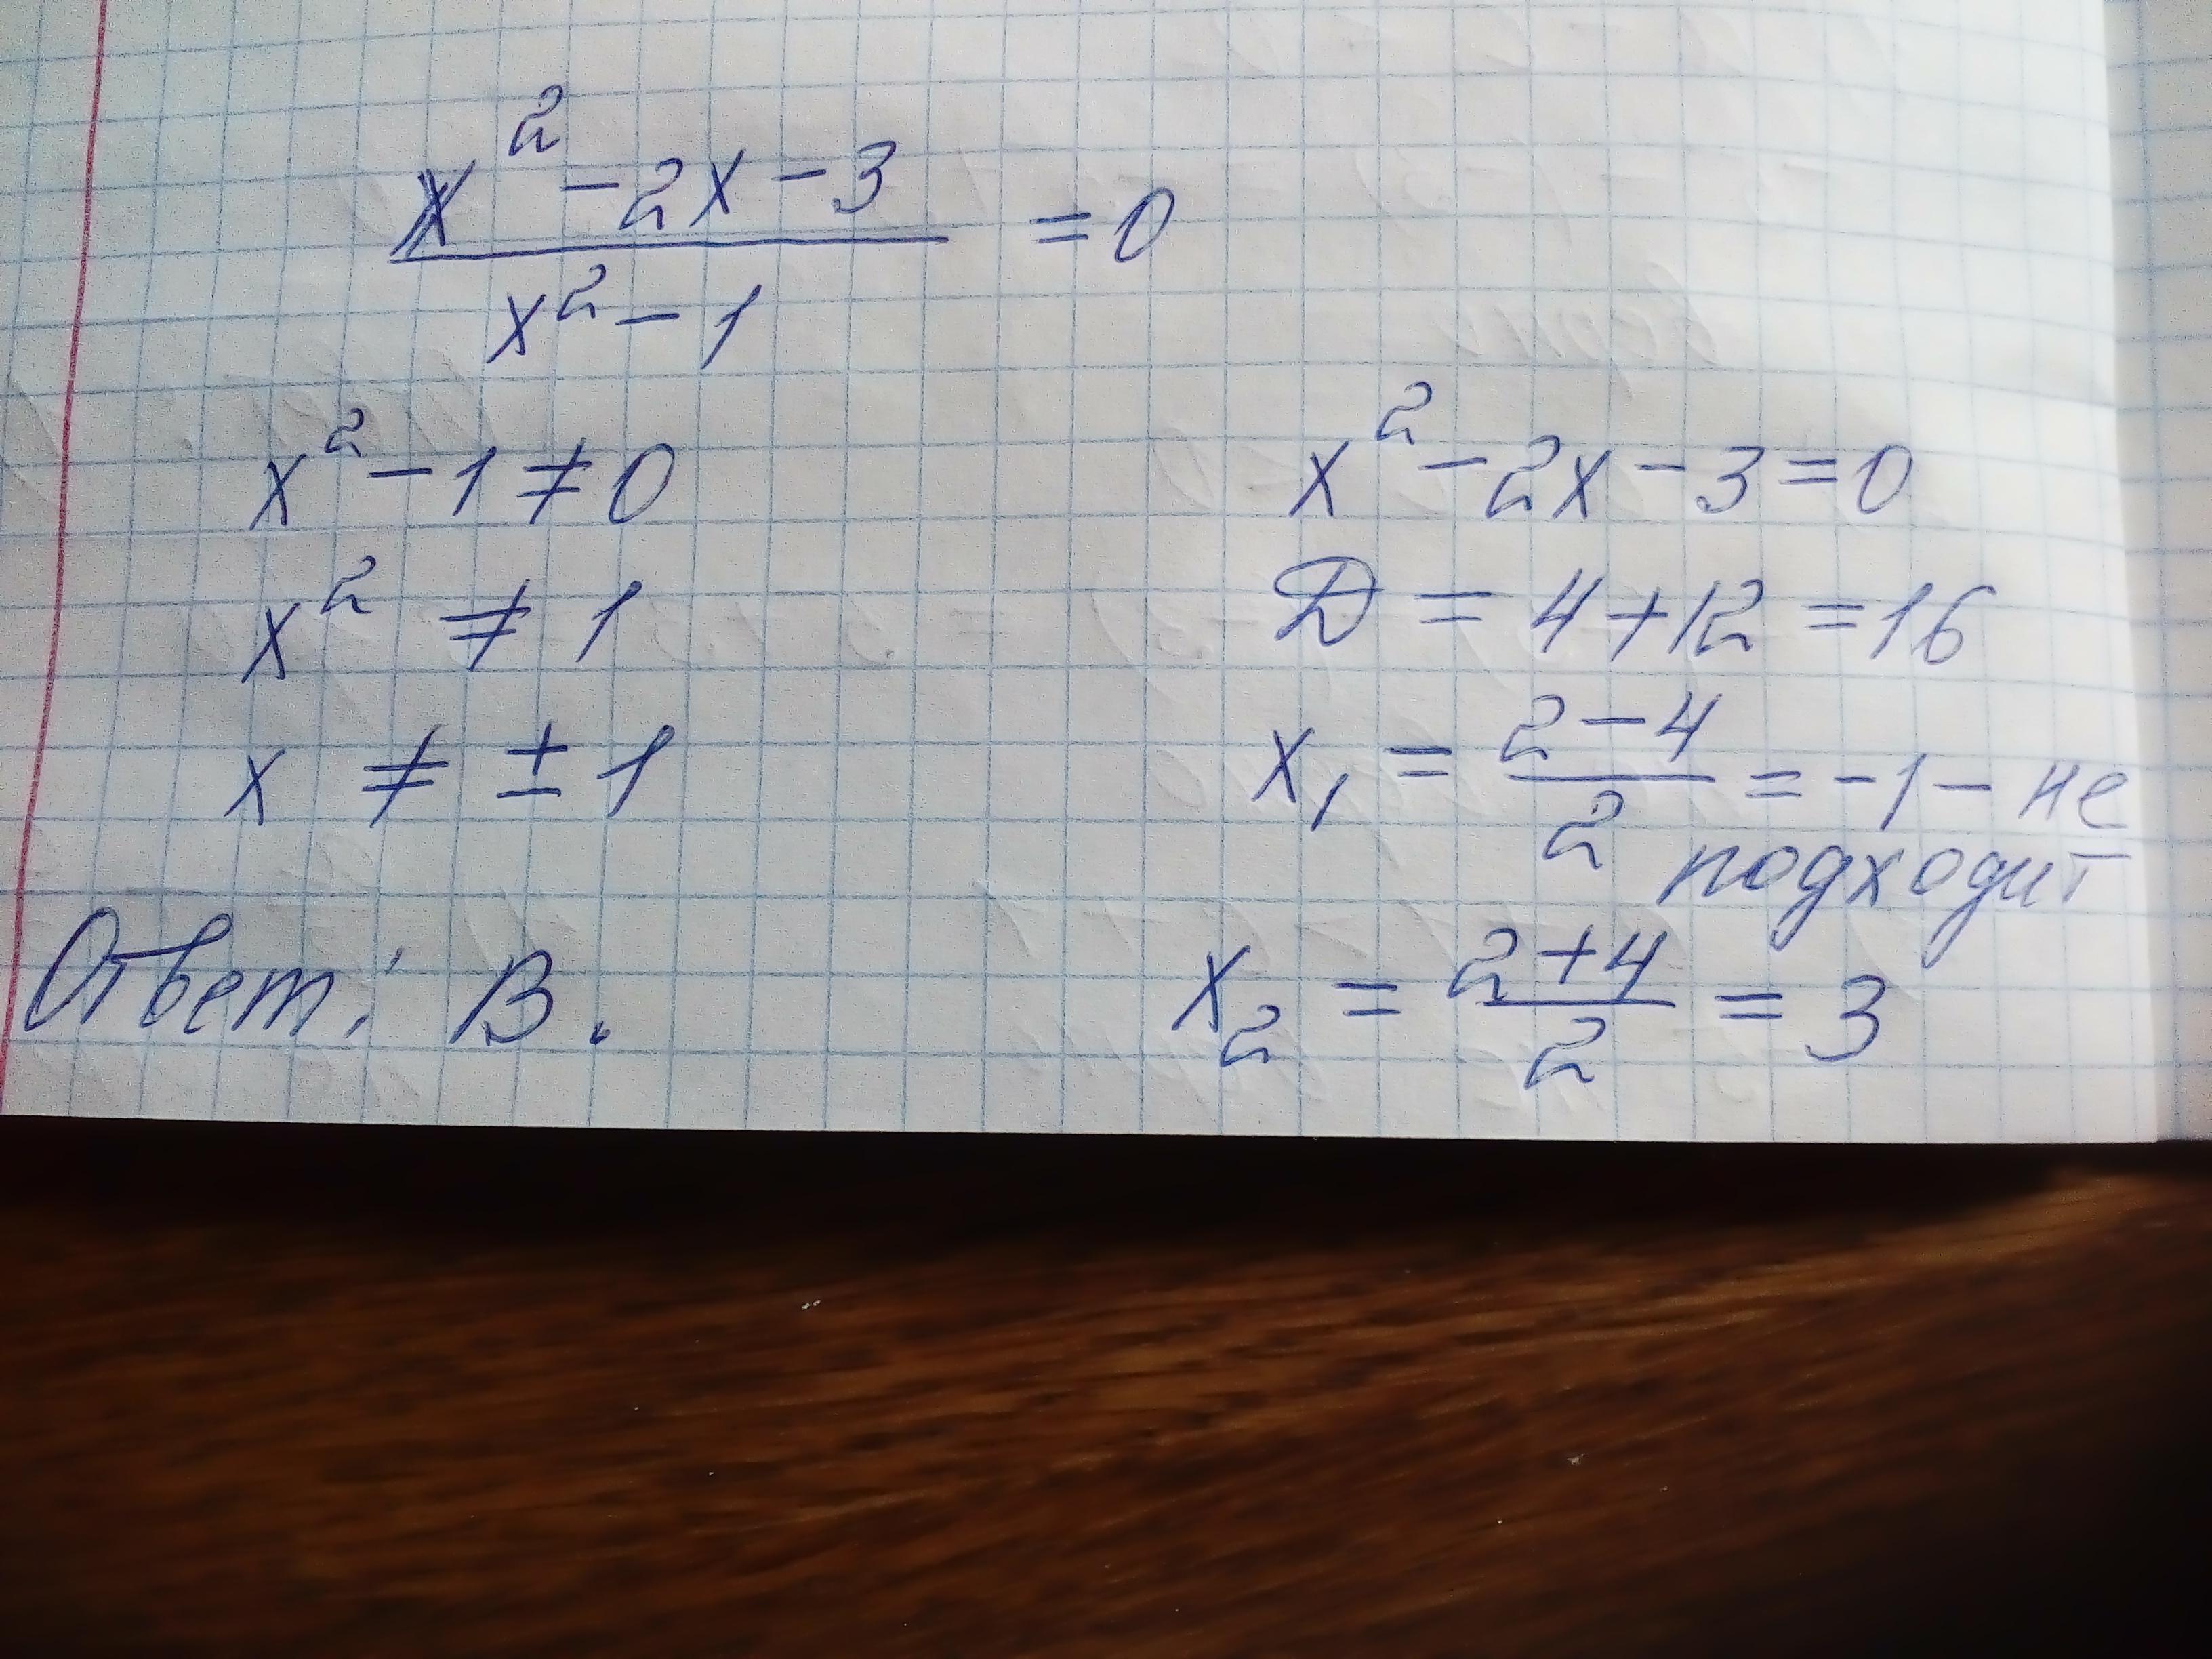 x² - 2x - 3
———————— = 0
x² - 1
x² - 1 ≠ 0
x² ≠ 1
x ≠ ± 1
Ответ: В.
x² - 2x - 3 = 0
D = 4 + 12 = 16
x₁ = (2 - 4)/2 = -1 - не
подходит
x₂ = (2 + 4)/2 = 3